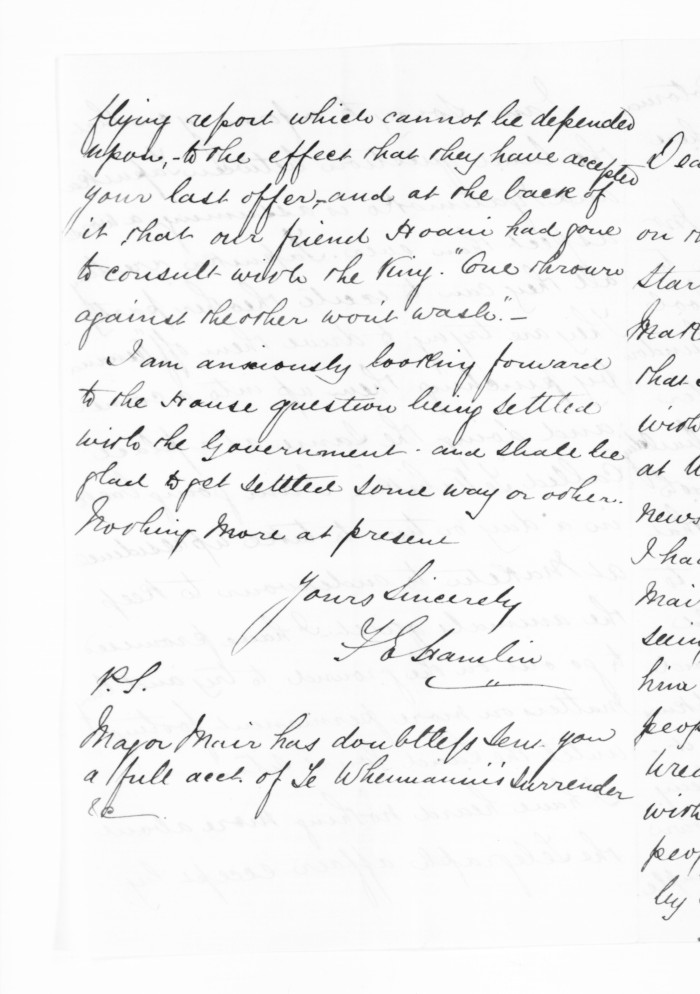 flying report which cannot be depended
upon, - to the effect that they have accepted
your last offer, and at the back of
it, that our friend Hoani had gone
to consult with the King. "One thrown
against the other won't wash." -
I am anxiously looking forward
to the House question being settled
with the Government - and shall be
glad to get settled some way or other.
Nothing more at present
Yours Sincerely
F E Hamlin
P.S.
Major Mair has doubtless sent you
a full acct. of Te surrender
&c
Dea
on th
star
Mak
that
with
at
news
I ha
Mai
seein
him
peop
with
peop
by